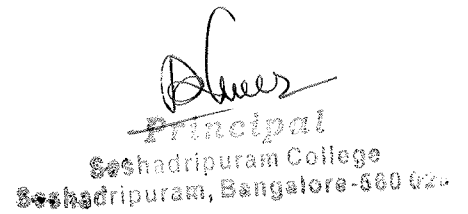 Principal
Seshadripuram College
Seshadripuram, Bangalore-560 02